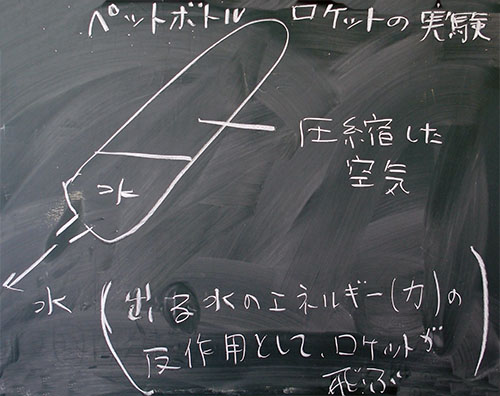 ペットボトル ロケットの実験
圧縮した
空気
水
水
(出る水のエネルギー(力)の
反作用として、ロケットが
飛ぶ)